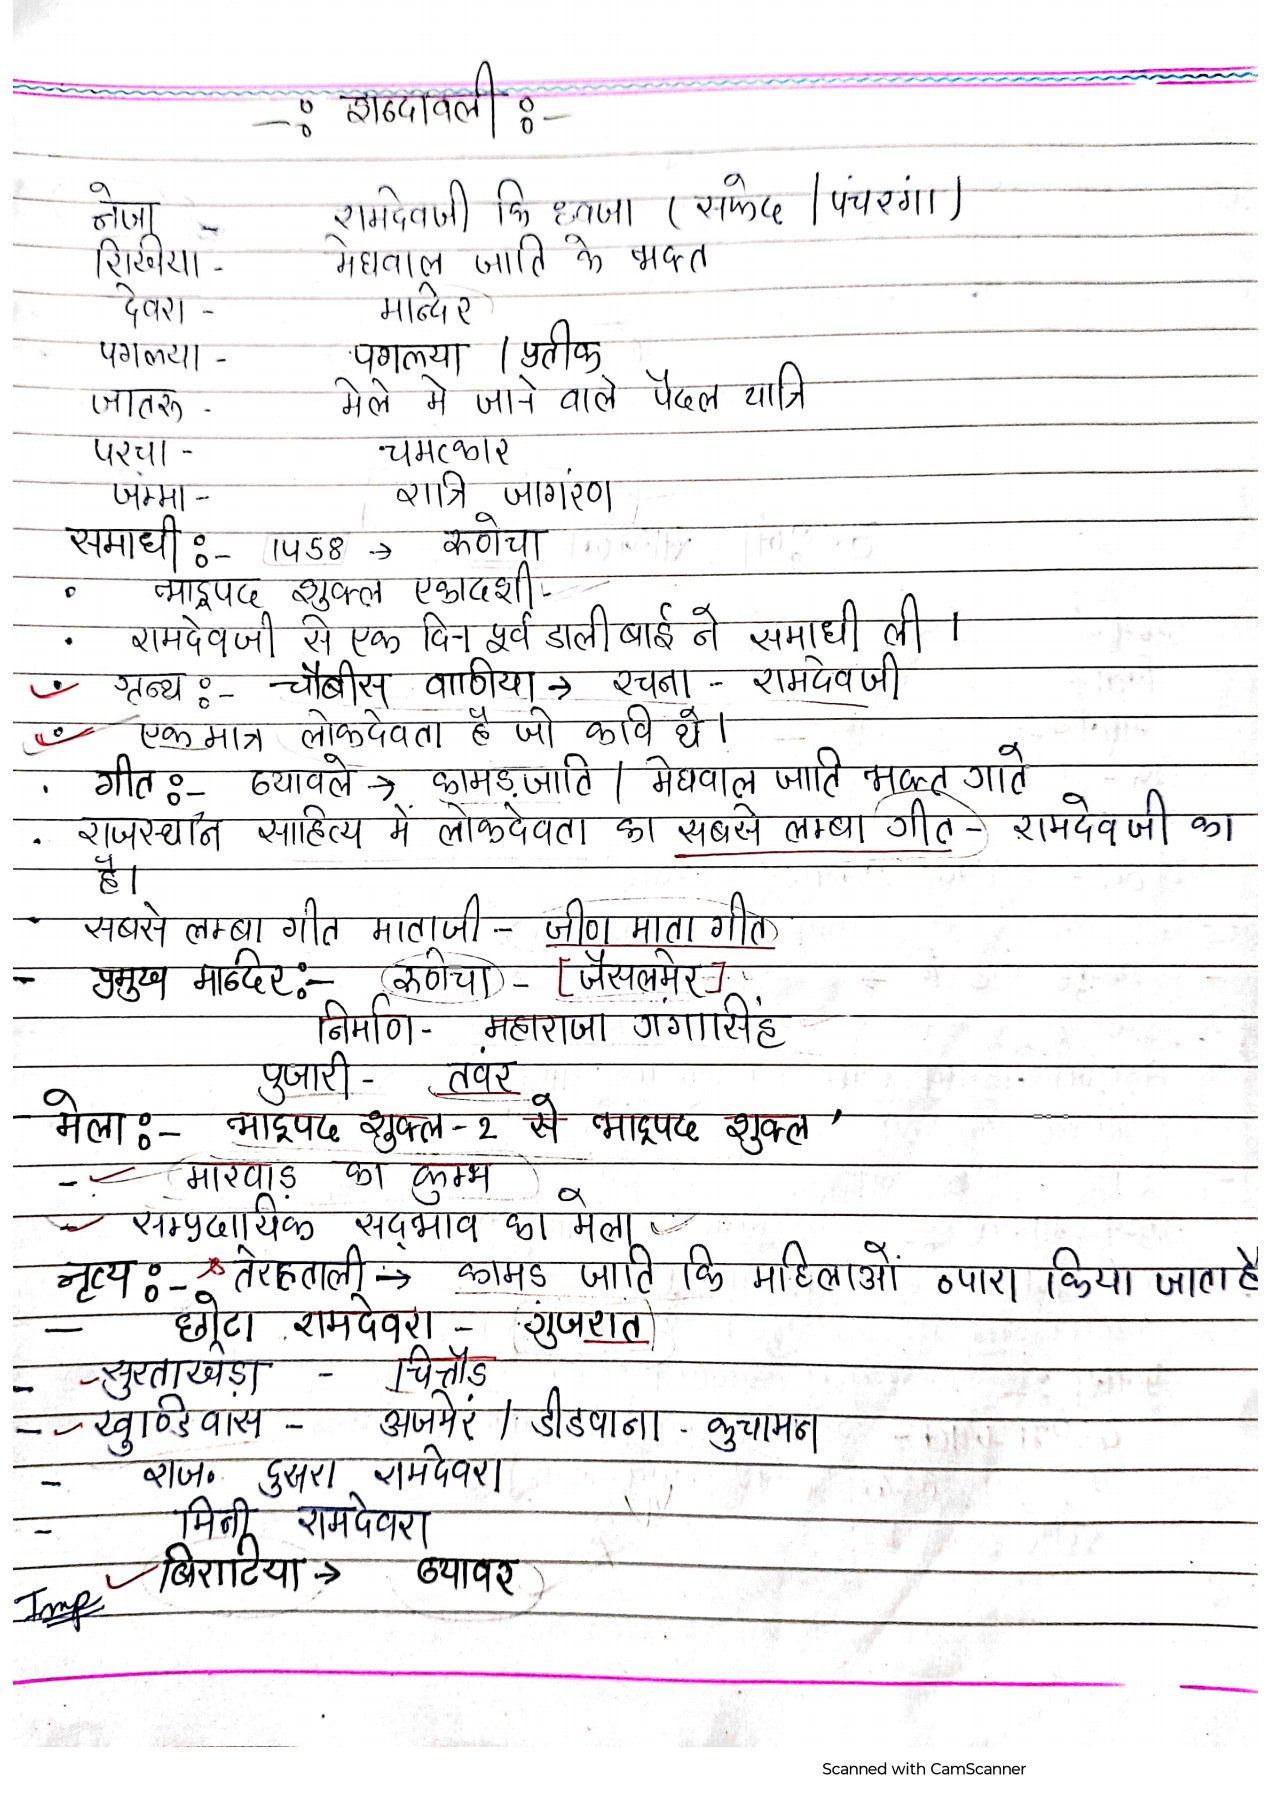 -: शब्दावली :-
नेजा - रामदेवजी कि ध्वजा ( सफेद / पंचरंगा )
रिखिया - मेघवाल जाति के भक्त
देवरा - मान्दिर
पगलया - पगलया / प्रतीक
जातरू - मेले मे जाने वाले पैदल यात्रि
परचा - चमत्कार
जम्मा - रात्रि जागरण
समाधी :- 1458 → रूणेचा
• भाद्रपद शुक्ल एकादशी -
• रामदेवजी से एक दिन पूर्व डाली बाई ने समाधी ली ।
• ग्रन्थ :- चौबीस वाणिया → रचना - रामदेवजी
• एक मात्र लोकदेवता है जो कवि थे ।
• गीत :- ब्यावले → कामड़ जाति / मेघवाल जाति भक्त गाते
• राजस्थान साहित्य में लोकदेवता का सबसे लम्बा गीत - रामदेवजी का
है ।
• सबसे लम्बा गीत माताजी - जीण माता गीत
- प्रमुख मान्दिर :- रूणेचा - [जैसलमेर]
निर्माण - महाराजा गंगासिंह
पुजारी - तवंर
मेला :- भाद्रपद शुक्ल - 2 से भाद्रपद शुक्ल '
- मारवाड़ का कुम्भ
- सम्प्रदायिक सद्भाव का मेला
नृत्य :- तेरहताली → कामड जाति कि महिलाओं व्दारा किया जाता है
- छोटा रामदेवरा - गुंजरात
- सुरताखेड़ा - चित्तौड
- खुण्डिवास - अजमेर / डीडवाना - कुचामन
- राज. दुसरा रामदेवरा
- मिनी रामदेवरा
Imp बिराटिया → ब्यावर
Scanned with CamScanner